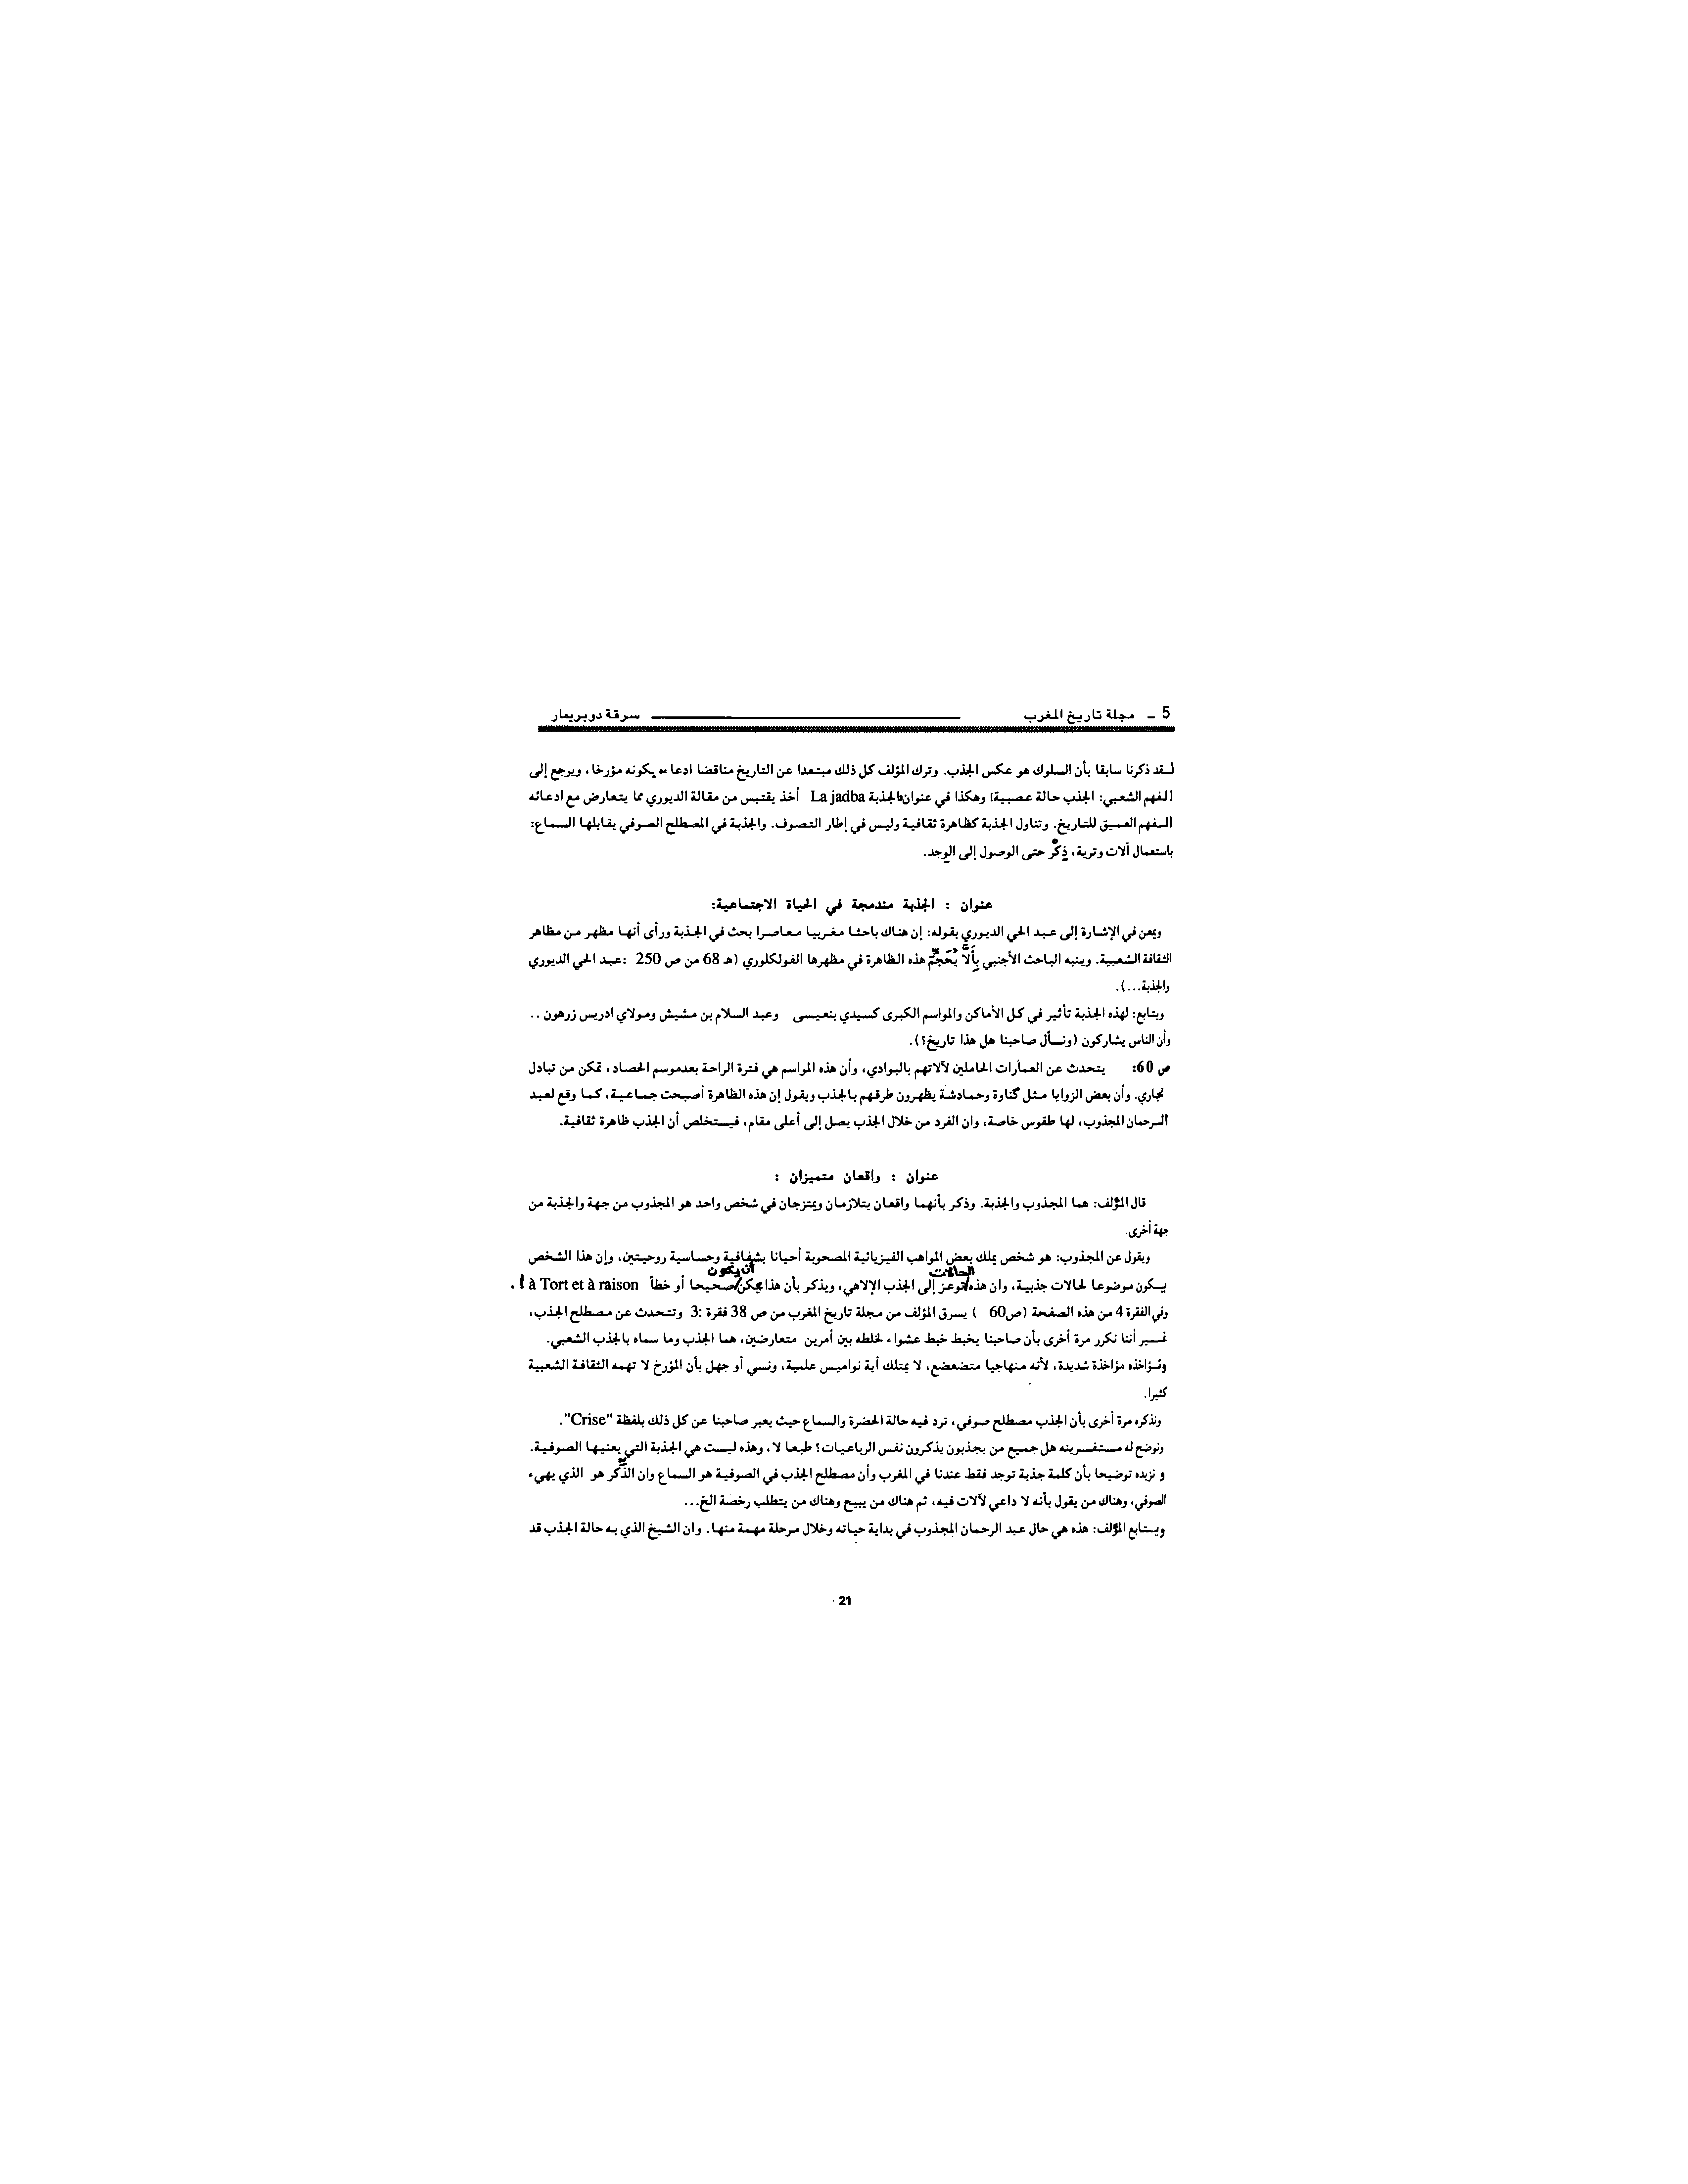 5 ـ مجلة تاريخ المغرب سرقة دوبريمار
لـقد ذكرنا سابقا بأن السلوك هو عكس الجذب. وترك المؤلف كل ذلك مبتعدا عن التاريخ مناقضا ادعاءه بكونه مؤرخا، ويرجع إلى
الفهم الشعبي: الجذب حالة عصبية! وهكذا في عنوان:الجذبة La jadba أخذ يقتبس من مقالة الديوري مما يتعارض مع ادعائه
الـفهم العميق للتاريخ. وتناول الجذبة كظاهرة ثقافية وليس في إطار التصوف. والجذبة في المصطلح الصوفي يقابلها السماع:
باستعمال آلات وترية، ذِكْر حتى الوصول إلى الوجد.
عنوان : الجذبة مندمجة في الحياة الاجتماعية:
ويمعن في الإشارة إلى عبد الحي الديوري بقوله: إن هناك باحثا مغربيا معاصرا بحث في الجذبة ورأى أنها مظهر من مظاهر
الثقافة الشعبية. وينبه الباحث الأجنبي بِأَلاَّ يُحَجِّمَ هذه الظاهرة في مظهرها الفولكلوري (هـ 68 من ص 250 :عبد الحي الديوري
والجذبة...).
ويتابع: لهذه الجذبة تأثير في كل الأماكن والمواسم الكبرى كسيدي بنعيسى وعبد السلام بن مشيش ومولاي ادريس زرهون ..
وأن الناس يشاركون (ونسأل صاحبنا هل هذا تاريخ؟).
ص 60: يتحدث عن العمارات الحاملين لآلاتهم بالبوادي، وأن هذه المواسم هي فترة الراحة بعدموسم الحصاد، تمكن من تبادل
تجاري. وأن بعض الزوايا مثل گناوة وحمادشة يظهرون طرقهم بالجذب ويقول إن هذه الظاهرة أصبحت جماعية، كما وقع لعبد
الـرحمان المجذوب، لها طقوس خاصة، وان الفرد من خلال الجذب يصل إلى أعلى مقام، فيستخلص أن الجذب ظاهرة ثقافية.
عنوان : واقعان متميزان :
قال المؤلف: هما المجذوب والجذبة. وذكر بأنهما واقعان يتلازمان ويمتزجان في شخص واحد هو المجذوب من جهة والجذبة من
جهة أخرى.
ويقول عن المجذوب: هو شخص يملك بعض المواهب الفيزيائية المصحوبة أحيانا بشفافية وحساسية روحيتين، وإن هذا الشخص
يـكون موضوعا لحالات جذبية، وان هذه الحالات توعز إلى الجذب الإلاهي، ويذكر بأن هذا يمكن أن يكون صحيحا أو خطأ à Tort et à raison ! .
وفي الفقرة 4 من هذه الصفحة (ص60 ) يسرق المؤلف من مجلة تاريخ المغرب من ص 38 فقرة :3 وتتحدث عن مصطلح الجذب،
غـير أننا نكرر مرة أخرى بأن صاحبنا يخبط خبط عشواء لخلطه بين أمرين متعارضين، هما الجذب وما سماه بالجذب الشعبي.
ونـؤاخذه مؤاخذة شديدة، لأنه منهاجيا متضعضع، لا يمتلك أية نواميس علمية، ونسي أو جهل بأن المؤرخ لا تهمه الثقافة الشعبية
كثيرا.
ونذكره مرة أخرى بأن الجذب مصطلح صوفي، ترد فيه حالة الحضرة والسماع حيث يعبر صاحبنا عن كل ذلك بلفظة "Crise".
ونوضح له مستفسرينه هل جميع من يجذبون يذكرون نفس الرباعيات؟ طبعا لا، وهذه ليست هي الجذبة التي يعنيها الصوفية.
و نزيده توضيحا بأن كلمة جذبة توجد فقط عندنا في المغرب وأن مصطلح الجذب في الصوفية هو السماع وان الذِّكر هو الذي يهيء
الصوفي، وهناك من يقول بأنه لا داعي لآلات فيه، ثم هناك من يبيح وهناك من يتطلب رخصة الخ...
ويـتابع المؤلف: هذه هي حال عبد الرحمان المجذوب في بداية حياته وخلال مرحلة مهمة منها. وان الشيخ الذي به حالة الجذب قد
21